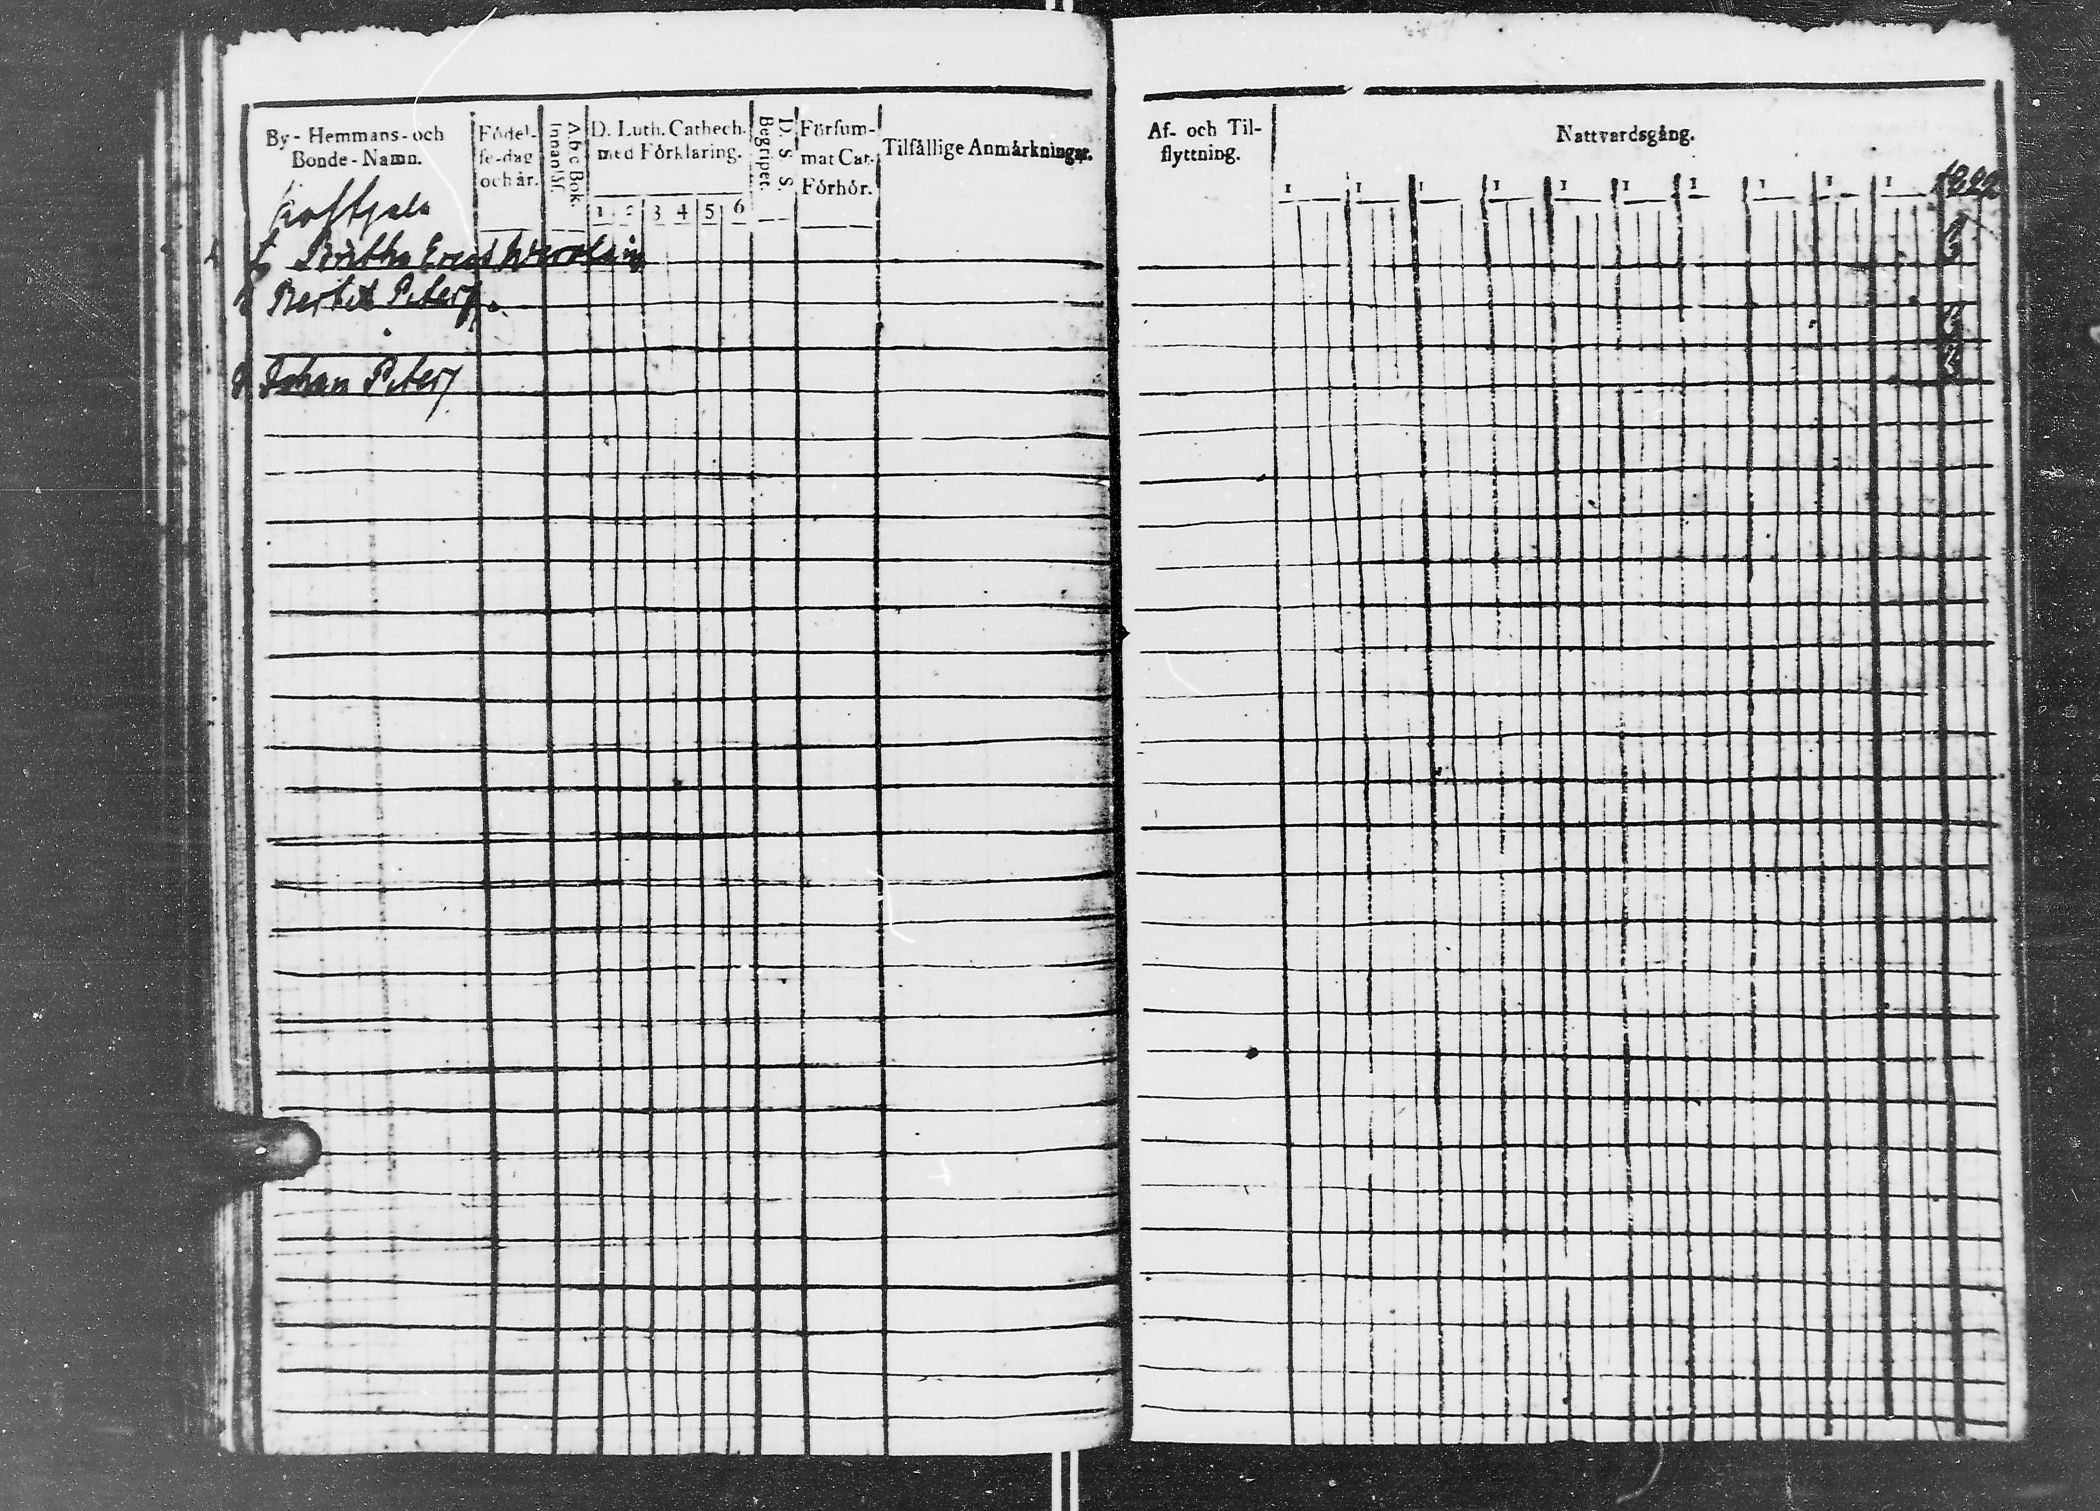 By-Hemmans-och
Bonde-Namn.
Födel-
se-dag
och år.
A b c Bok.
Innanläs.
D. Luth. Cathech.
med Förklaring.
1 2 3 4 5 6
D. S. S.
Begripet.
Försum-
mat Cat.
Förhör.
Tilfällige Anmärkningar.
Britha Ersd
Bertil Peters.
Johan Peters
Af- och Til-
flyttning.
Nattvardsgång.
1 1 1 1 1 1 1 1 1 1 1822